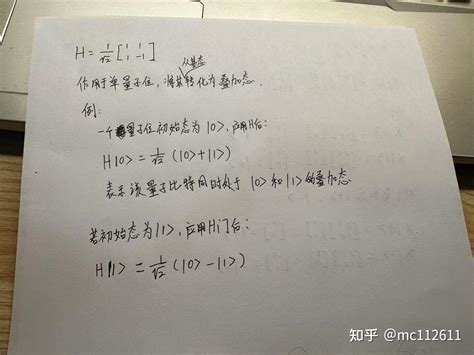 H = 1/√2 [1 1
1 -1]
从基态
作用于单量子位,将其转化为叠加态.
例:
一个量子位初始态为 |0>, 应用H后:
H|0> = 1/√2 (|0>+|1>)
表示该量子比特同时处于 |0> 和 |1> 的叠加态
若初始态为 |1>, 应用H门后:
H|1> = 1/√2 (|0>-|1>)
知乎 @mc112611